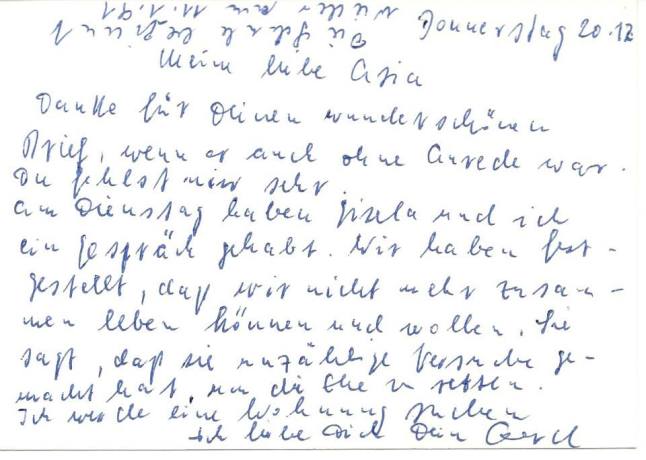 Donnerstag 20.12
Die Schule beginnt
wieder am 11.1.91
Meine liebe Asia
Danke für Deinen wunderschönen
Brief, wenn er auch ohne Anrede war.
Du fehlst mir sehr.
Am Dienstag haben Gisela und ich
ein Gespräch gehabt. Wir haben fest-
gestellt, daß wir nicht mehr zusam-
men leben können und wollen. Sie
sagt, daß sie unzählige Versuche ge-
macht hat, um die Ehe zu retten.
Ich werde eine Wohnung suchen
Ich liebe Dich Dein Gerd